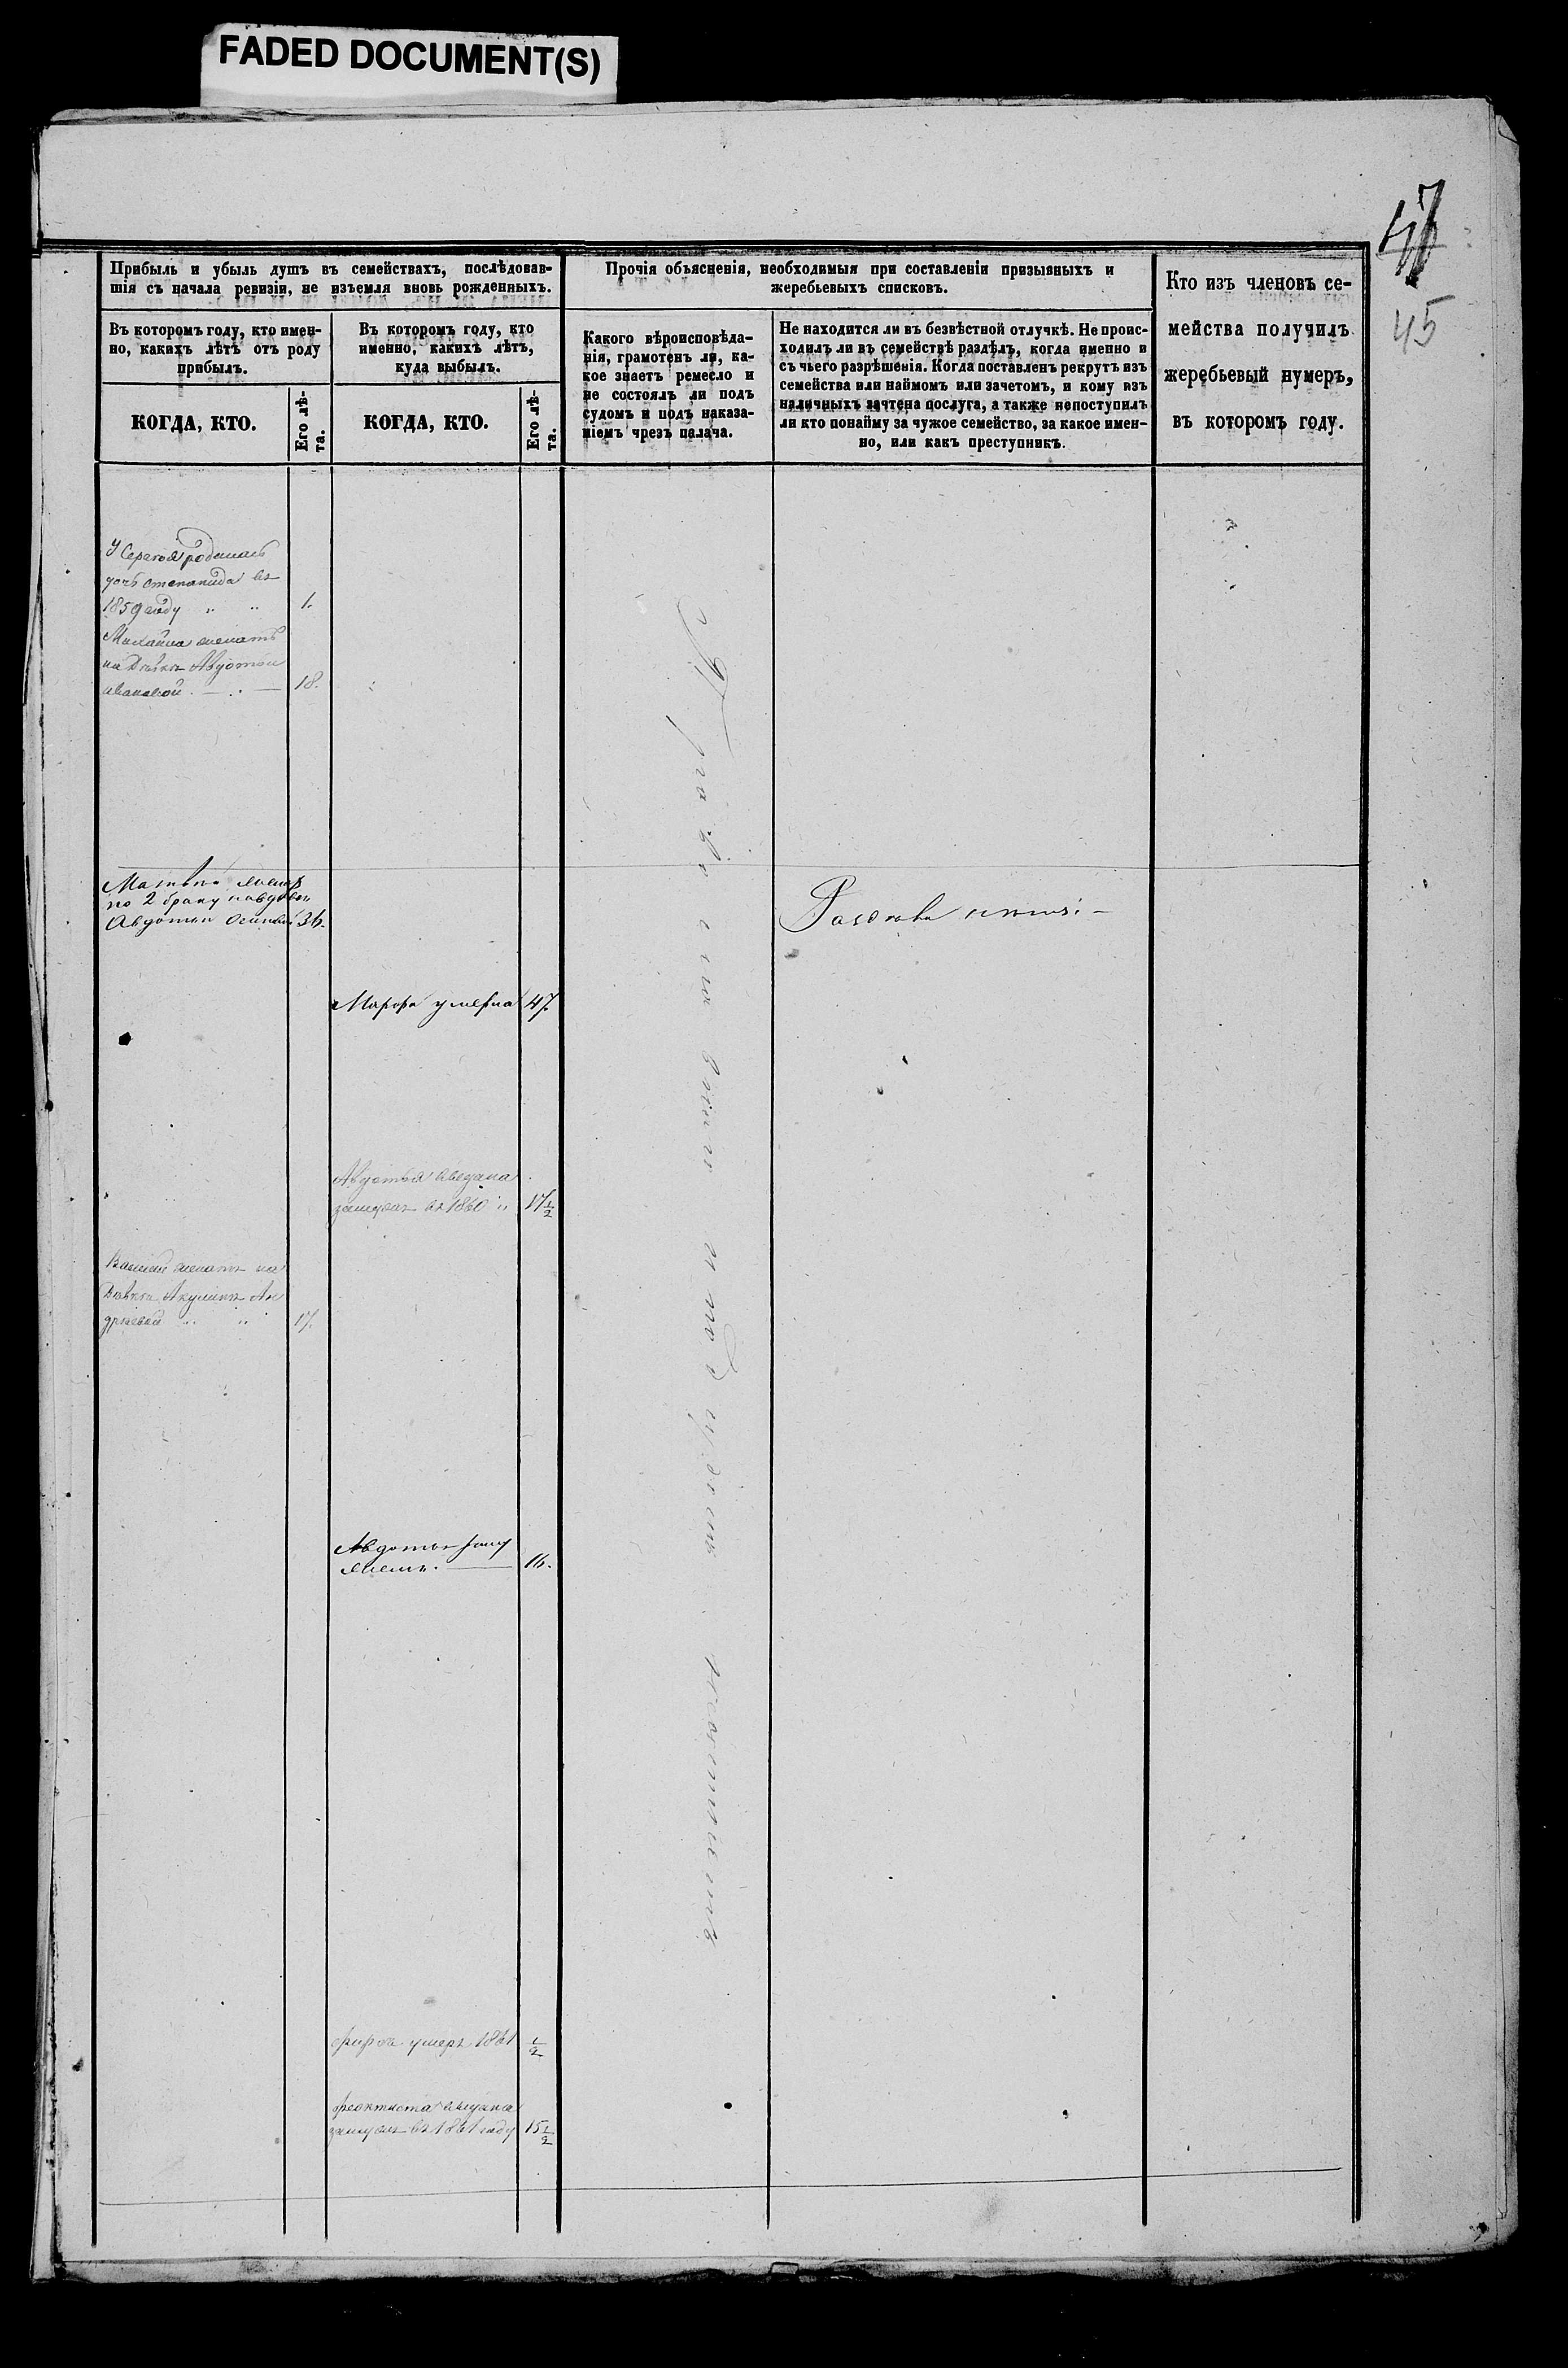 FADED DOCUMENT(S)
47
45
Прибыль и убыль душъ въ семействахъ, послѣдовав-
шія съ начала ревизіи, не изъемля вновь рожденныхъ.
Въ которомъ году, кто имен-
но, какихъ лѣтъ отъ роду
прибылъ.
КОГДА, КТО.
Его лѣ-
та.
Въ которомъ году, кто
именно, какихъ лѣтъ,
куда выбылъ.
КОГДА, КТО.
Его лѣ-
та.
Прочія объясненія, необходимыя при составленіи призывныхъ и
жеребьевыхъ списковъ.
Какого вѣроисповѣда-
нія, грамотенъ ли, ка-
кое знаетъ ремесло и
не состоялъ ли подъ
судомъ и подъ наказа-
ніемъ чрезъ палача.
Не находится ли въ безвѣстной отлучкѣ. Не проис-
ходилъ ли въ семействѣ раздѣлъ, когда именно и
съ чьего разрѣшенія. Когда поставленъ рекрутъ изъ
семейства или наймомъ или зачетомъ, и кому изъ
наличныхъ зачтена послуга, а также непоступилъ
ли кто понайму за чужое семейство, за какое имен-
но, или какъ преступникъ.
Кто изъ членовъ се-
мейства получилъ
жеребьевый нумеръ,
въ которомъ году.
У Сергея родилась
дочь Степанида въ
1859 году 1.
Михайла женатъ
на Дѣвкѣ Авдотьи
Ивановой 18.
по 2 браку
Авдотьи 36.
Марфа умерла 47.
Авдотья выдана
замужъ въ 1860 17 1/2
Василий женатъ на
Дѣвкѣ Акулинѣ Ан
дрѣевой 17.
Авдотья заму
жемъ. 16.
Фирсъ умеръ 1861 1/2
Феоктиста выдана
замужъ въ 1861 году 15 1/2